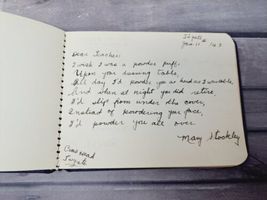 Dear Teacher:
I wish I was a powder puff,
Upon your dressing table,
All day I'd powder you as hard as I was able
And when at night you did retire,
I'd slip from under the cover,
Instead of powdering your face,
I'd powder you all over.
Mary
Road